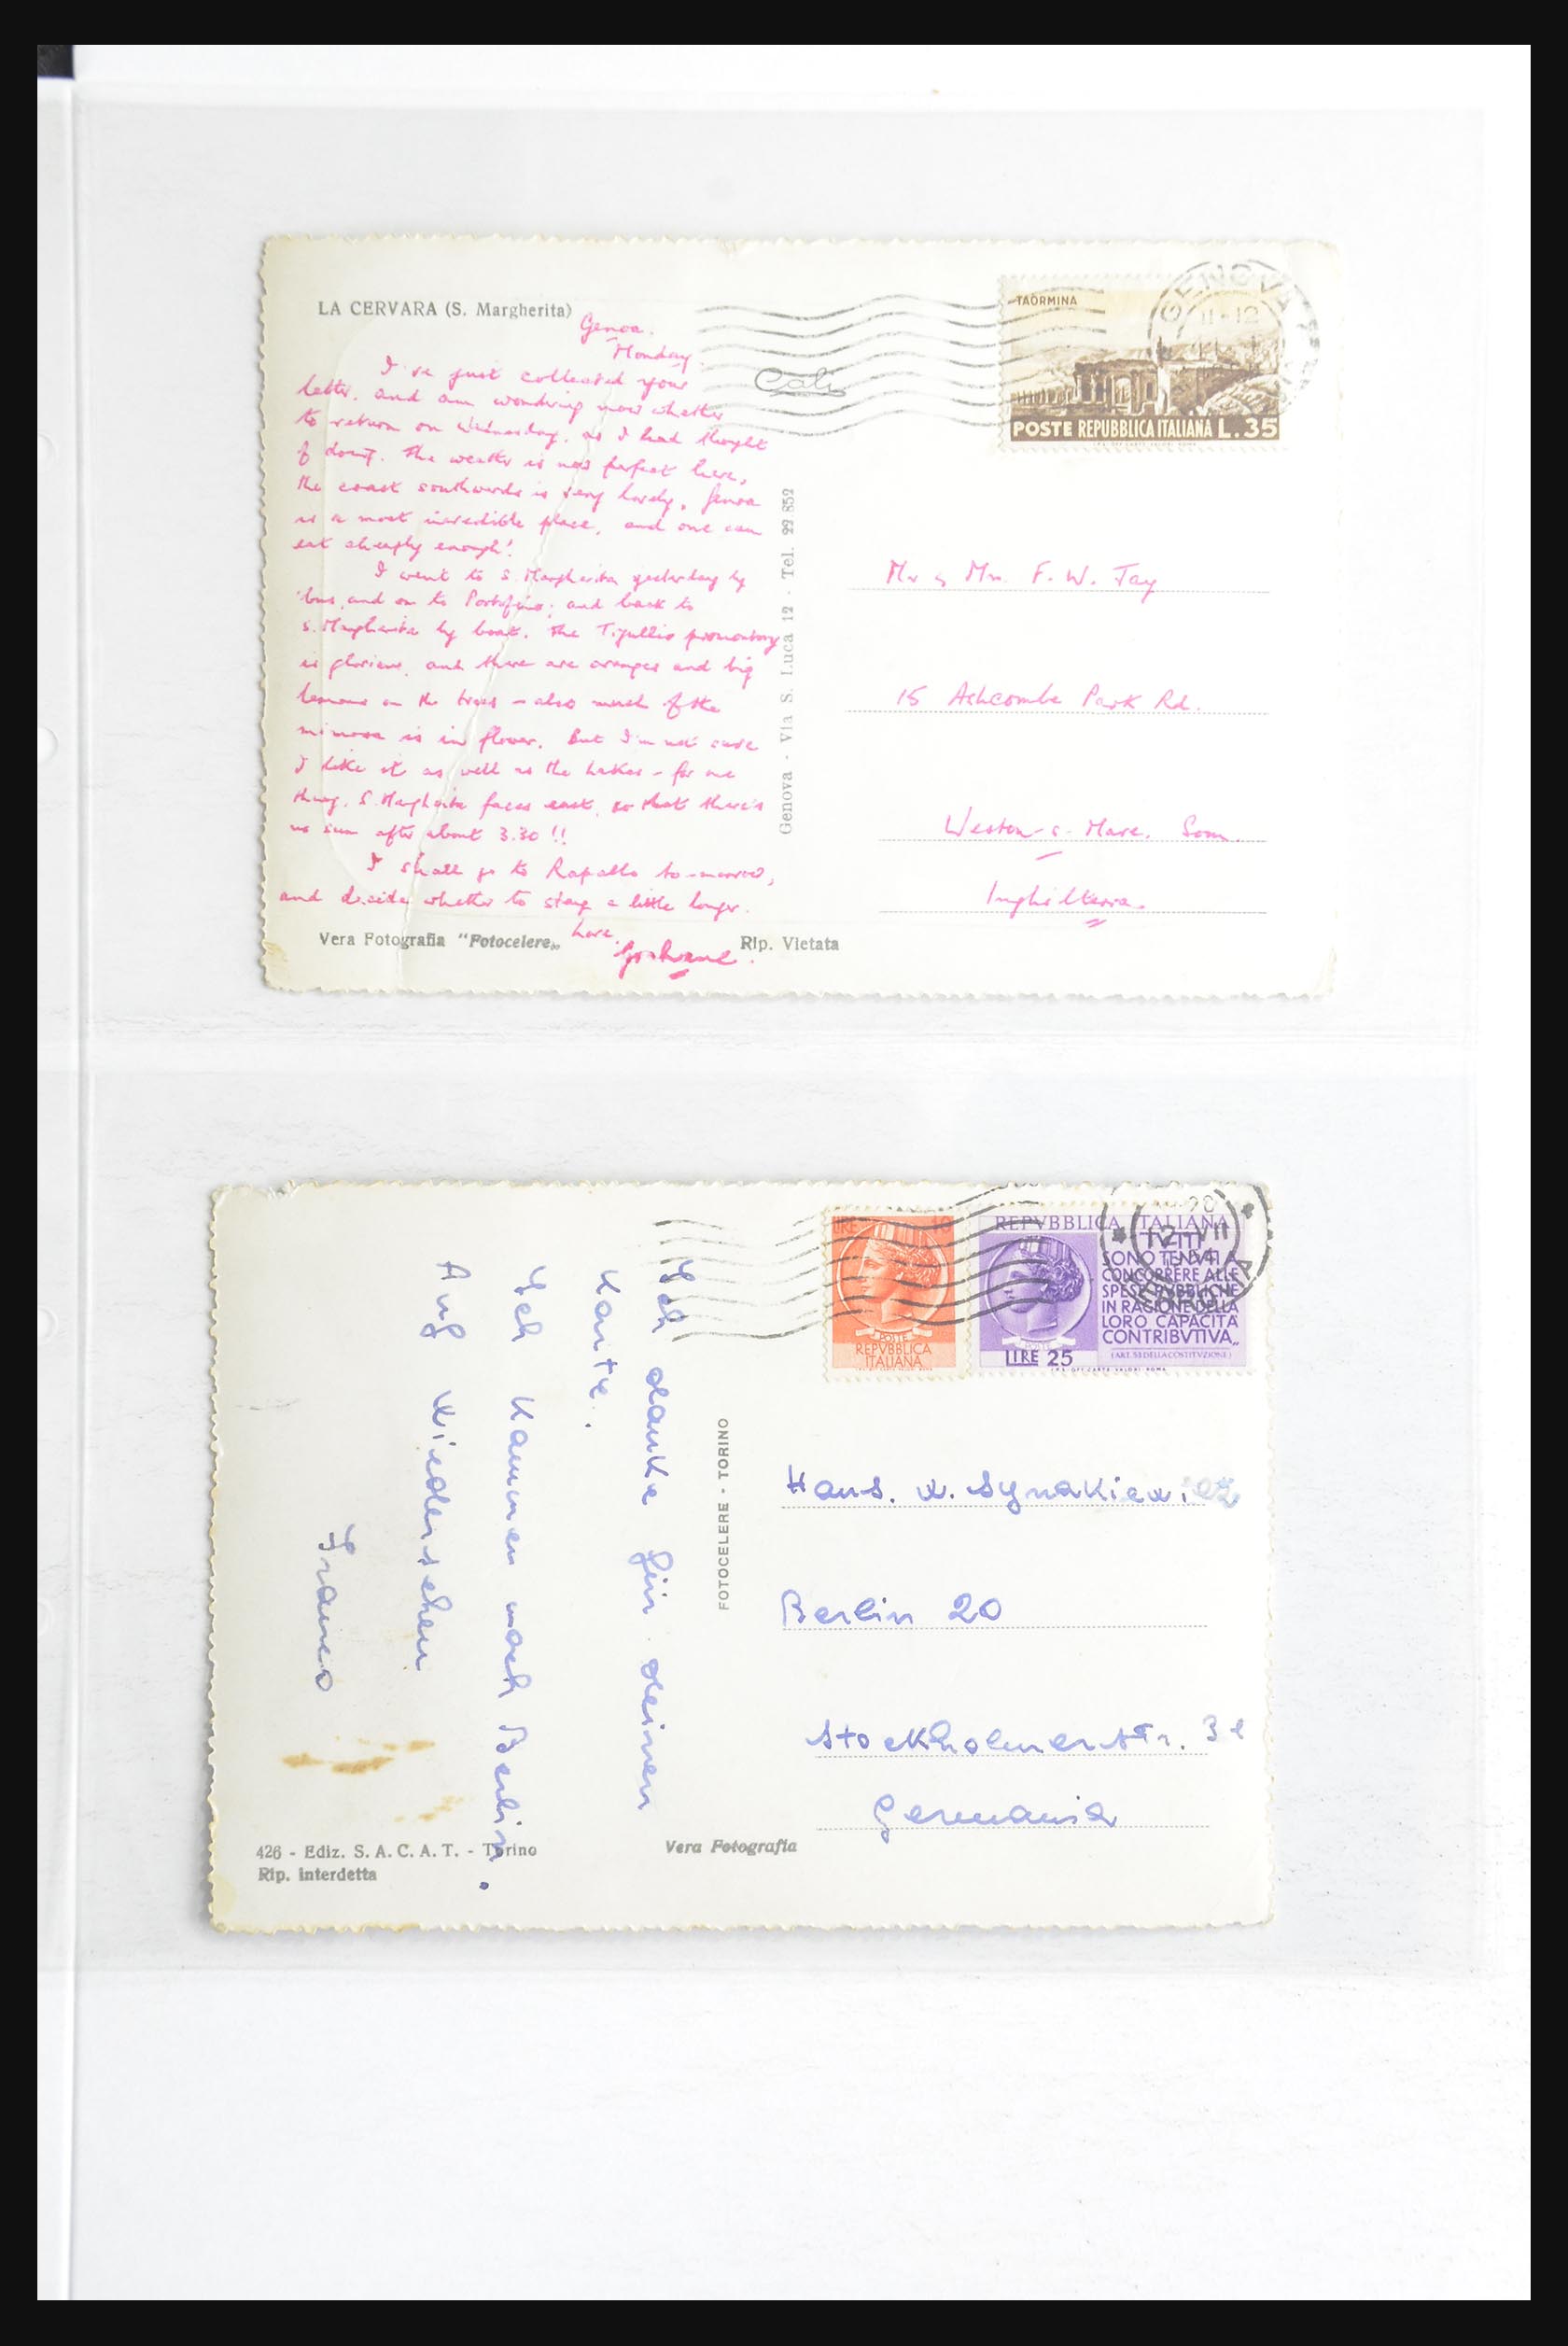 LA CERVARA (S. Margherita)
Genoa.
Monday.
I've just collected your
letter, and am wondering now whether
to return on Wednesday, as I had thought
of doing. The weather is now perfect here,
the coast southwards is very lovely, Genoa
is a most incredible place, and one can
eat cheaply enough!
I went to S. Margherita yesterday by
bus, and on to Portofino; and back to
S. Margherita by boat. The Tigullio promontory
is glorious, and there are oranges and big
lemons on the trees – also much of the
mimosa is in flower. But I'm not sure
I like it as well as the Lakes – for one
thing, S. Margherita faces east, so that there's
no sun after about 3.30 !!
I shall go to Rapallo to-morrow,
and decide whether to stay a little longer.
Love.
Vera Fotografia "Fotocelere„ Rip. Vietata
Calì
Genova - Via S. Luca 12 - Tel. 22 852
TAORMINA
POSTE REPUBBLICA ITALIANA L.35
I.P.S. OFF. CARTE VALORI ROMA
GENOVA
11-12
Mr & Mrs. F. W. Jay
15 Ashcombe Park Rd.
Weston-s-Mare. Som.
Inghilterra.
Ich danke für deinen
Karte.
Ich kommen nach Berlin.
Auf Wiedersehen
Franco
426 - Ediz. S. A. C. A. T. - Torino
Rip. interdetta
Vera Fotografia
FOTOCELERE - TORINO
LIRE 10
POSTE
REPVBBLICA
ITALIANA
REPVBBLICA ITALIANA
TVTTI
SONO TENVTI A
CONCORRERE ALLE
SPESE PVBBLICHE
IN RAGIONE DELLA
LORO CAPACITA
CONTRIBVTIVA„
(ART. 53 DELLA COSTITVZIONE)
LIRE 25
I.P.S. OFF. CARTE VALORI - ROMA
12 VII
Hans. W. Synakiewicz
Berlin 20
Stockholmerstr. 31
Germania